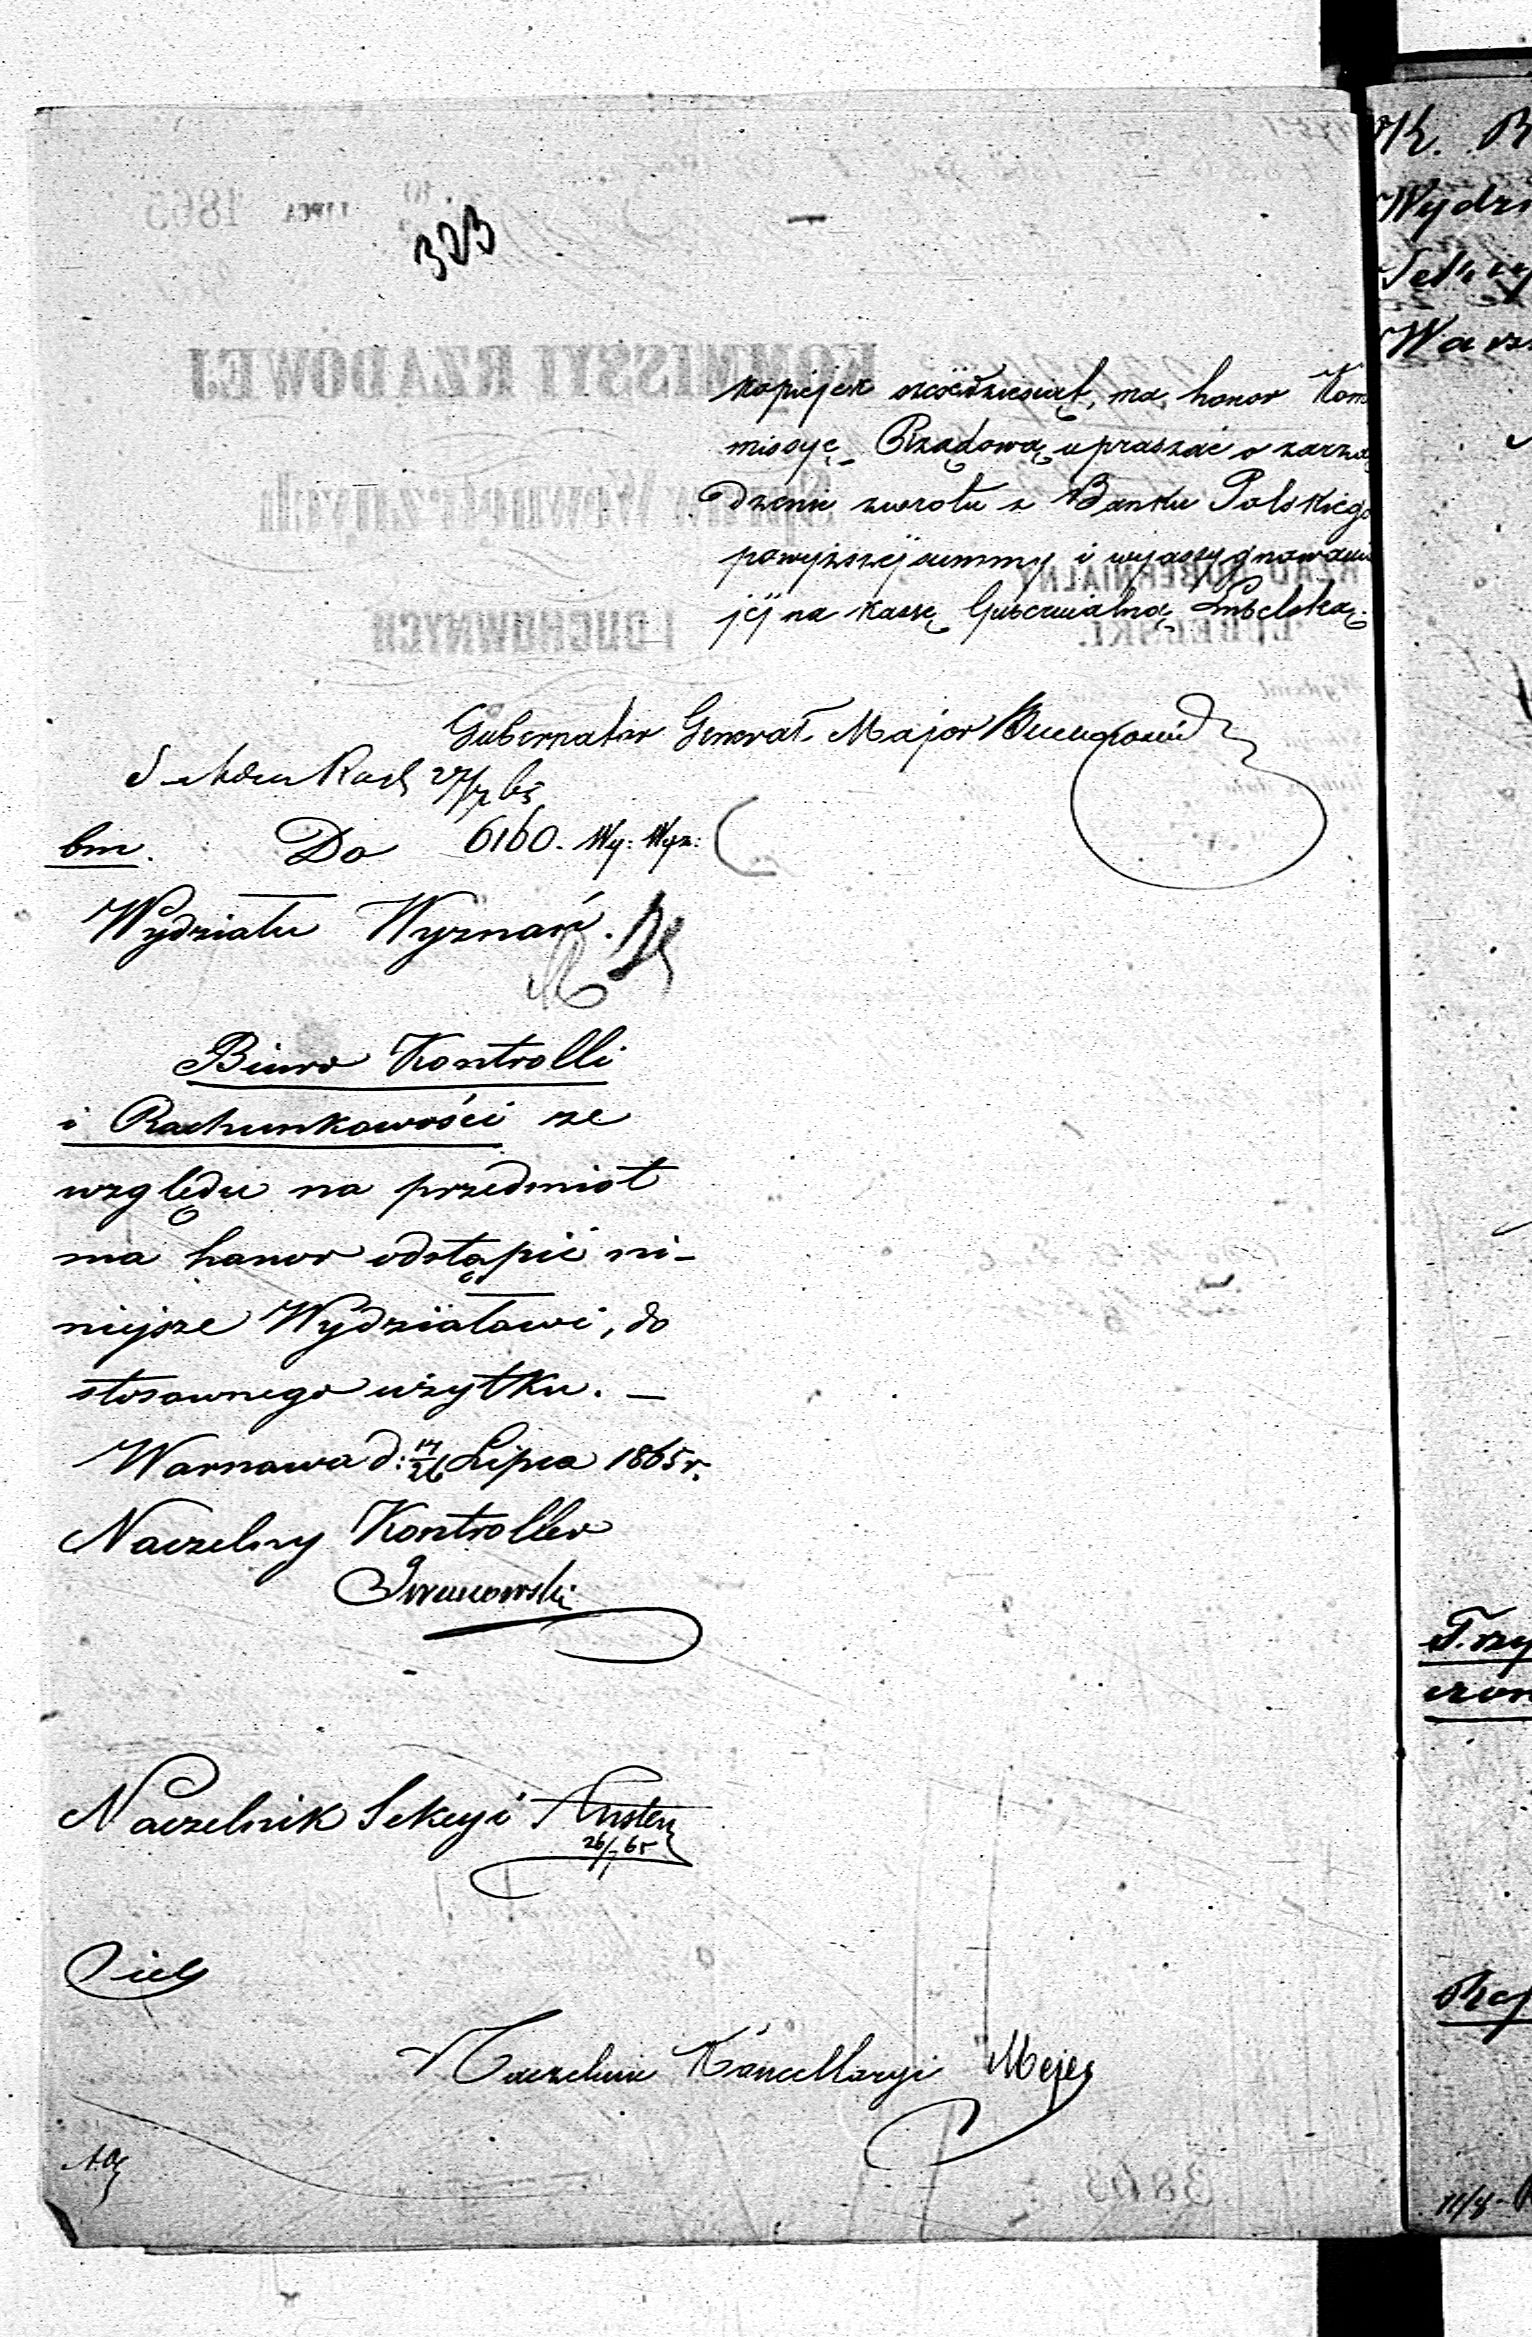 323
kopiejek sześćdziesiąt, ma honor Kom
missyę Rządową upraszać o zarzą
dzenie zwrotu z Banku Polskiego
powyższej summy i wyassygnowanie
jéj na kassę Gubernialną Lubelską.
Gubernator Generał-Major
27/7 65
bm. Do 6160. Wy: Wyz:
Wydziału Wyznań.
Biuro Kontrolli
i Rachunkowości ze
względu na przedmiot
ma honor odstąpić ni-
niejsze Wydziałowi, do
stosownego użytku. —
Warszawa d: 14/26 Lipca 1865 r.
Naczelny Kontroller
Iwanowski
Naczelnik Sekcyi
26/7 65
Naczelnik Kancellaryi Mejer
K. R
Wydzi
Sekcy
Warsz
11/8